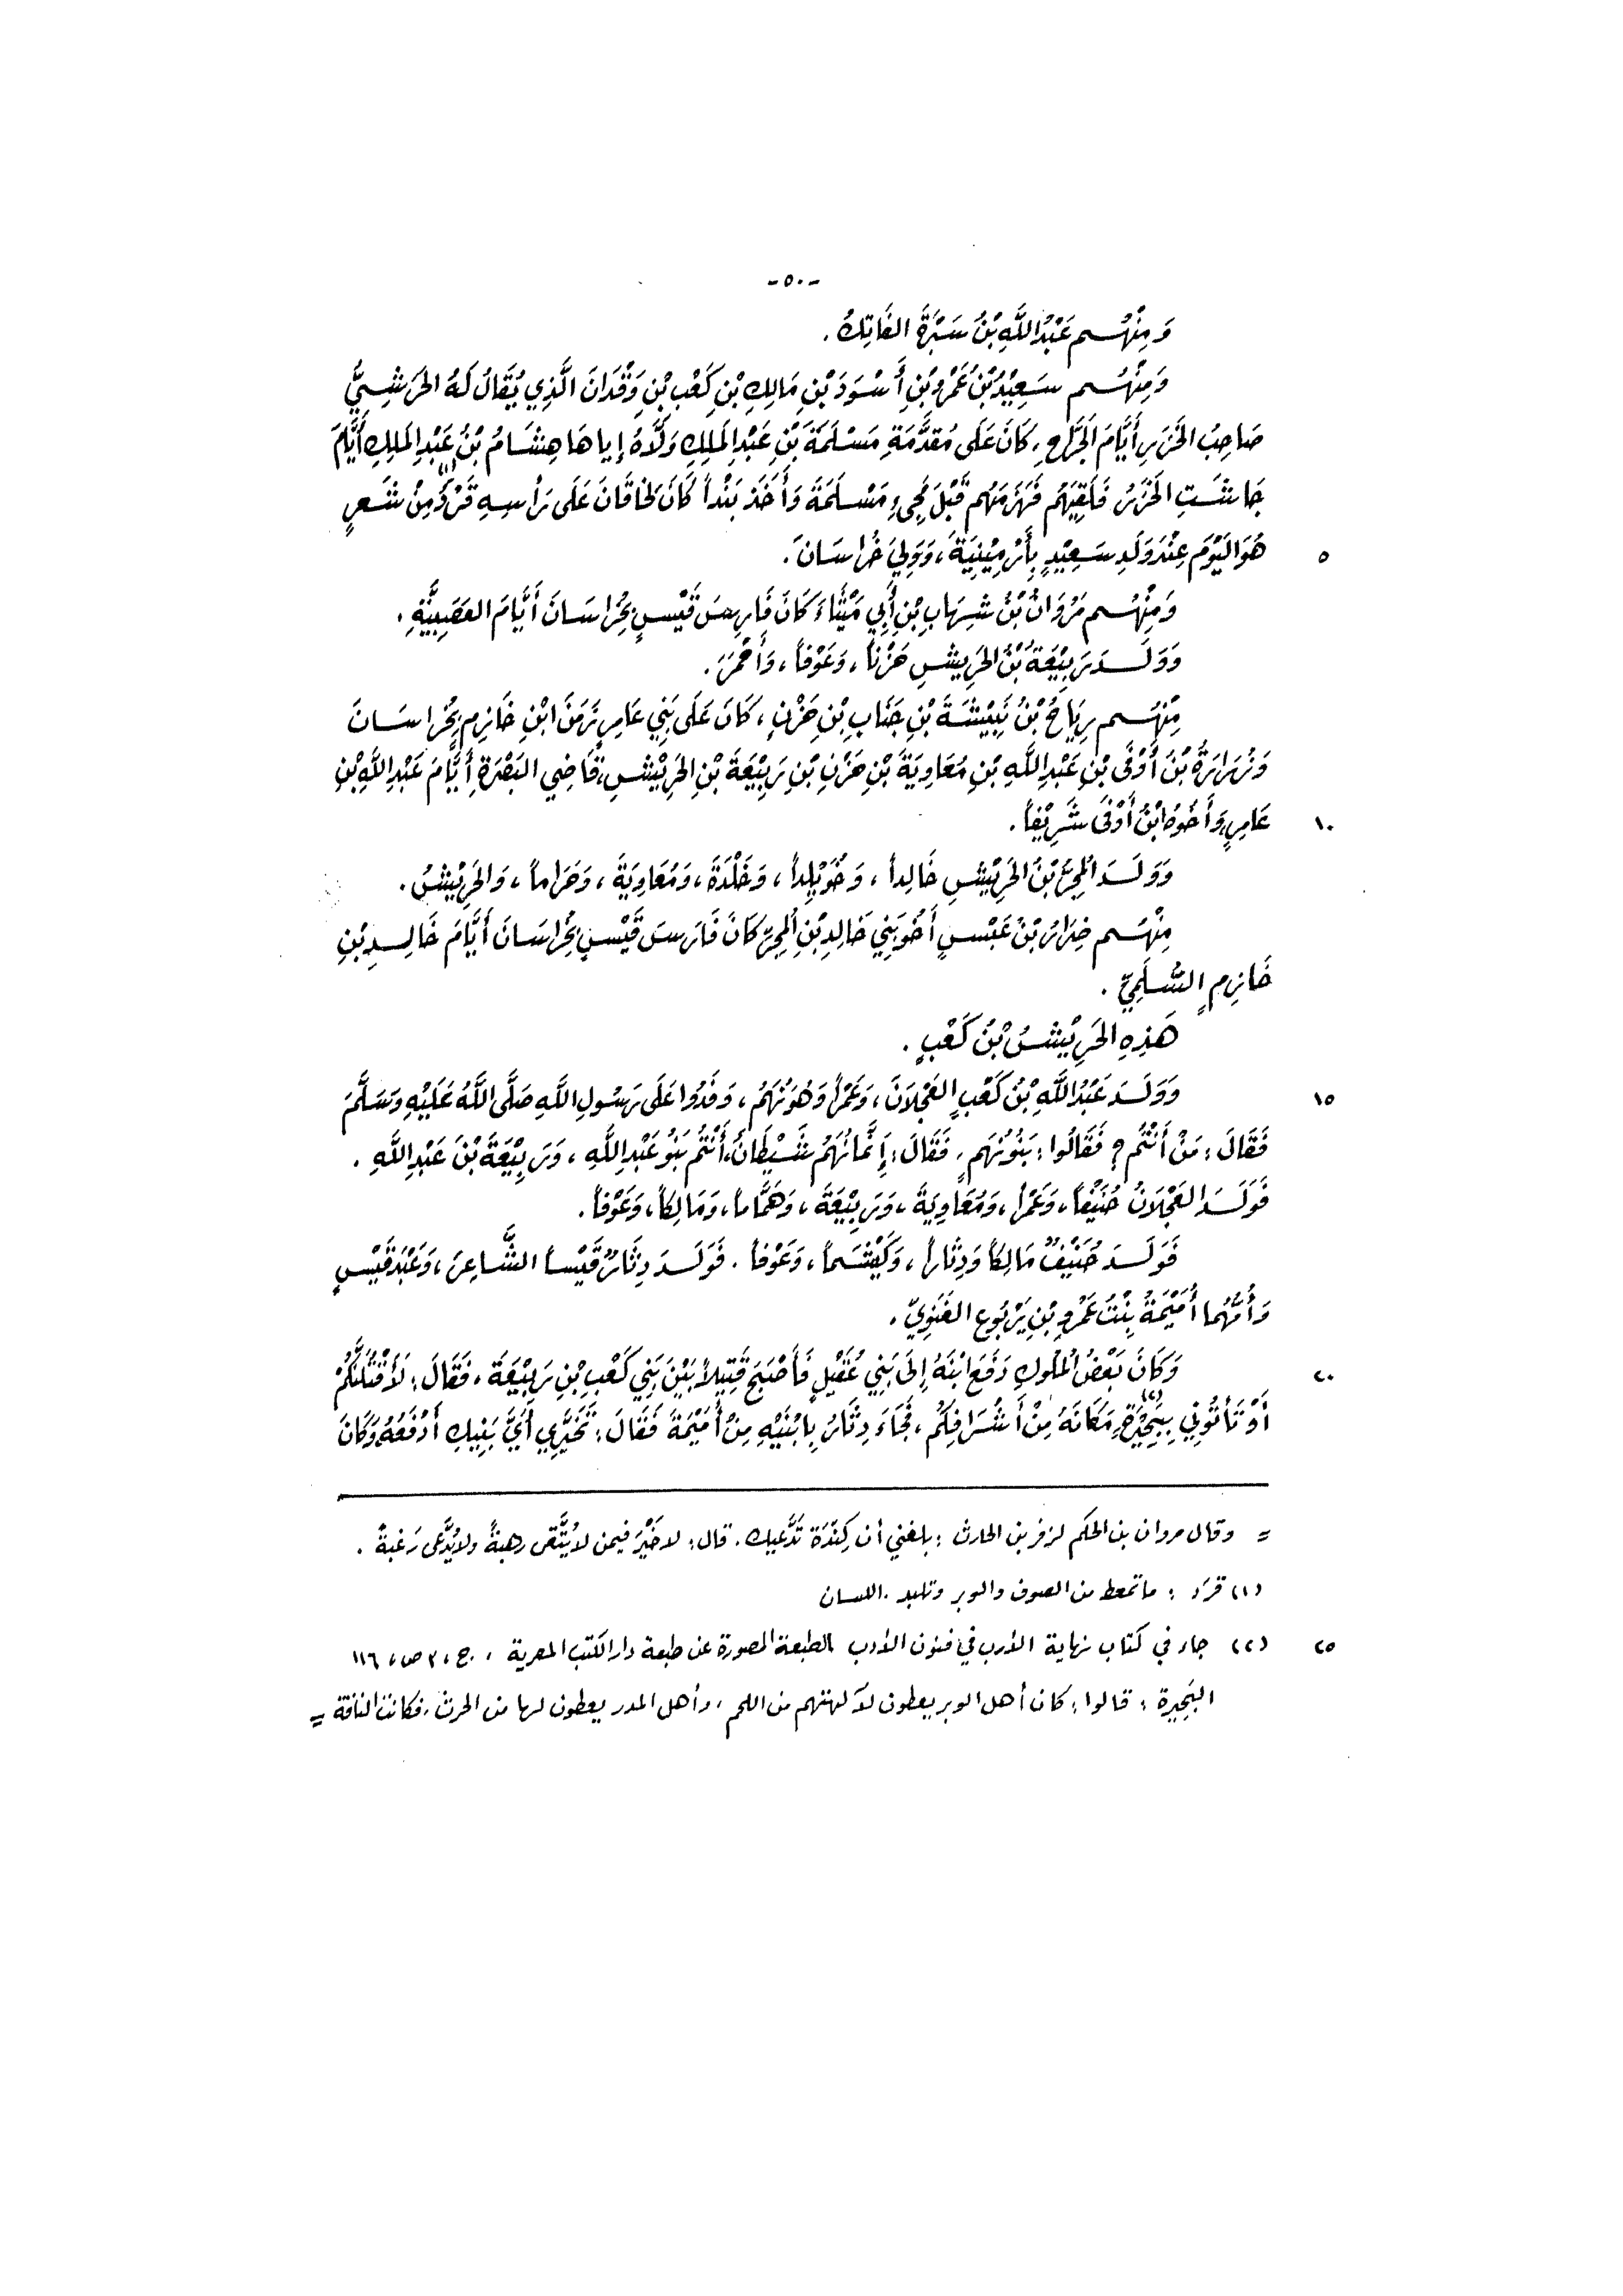 -٥٠-
وَمِنْهُم عَبْدُ اللَّهِ بْنُ سَبْرَةَ الفَاتِكُ .
وَمِنْهُم سَعِيْدُ بْنُ عَمْرِو بْنِ أَسْوَدَ بْنِ مَالِكِ بْنِ كَعْبِ بْنِ وَقْدَانَ الَّذِي يُقَالُ لَهُ الحَرَشِيُّ
صَاحِبُ الخَزَرِ أَيَّامَ الجَرَّاحِ، كَانَ عَلَى مُقَدَّمَةِ مَسْلَمَةَ بْنِ عَبْدِ المَلِكِ وَلَّاهُ إِياهَا هِشَامُ بْنُ عَبْدِ المَلِكِ أَيَّامَ
جَاشَتِ الخَزَرُ فَلَقِيَهُم فَهَزَمَهُم قَبْلَ مَجِيءِ مَسْلَمَةَ وَأَخَذَ بَنْداً كَانَ لِخَاقَانَ عَلَى رَأْسِهِ قَرَدٌ (١) مِنْ شَعرٍ
٥ هُوَ اليَوْمَ عِنْدَ وَلَدِ سَعِيْدٍ بِأَرْمِيْنِيَةَ ، وَوَلِيَ خُرَاسَانَ .
وَمِنْهُم مَرْوَانُ بْنُ شِهَابِ بْنِ أَبِي مَيْثَاءَ كَانَ فَارِسَ قَيْسٍ بِخُرَاسَانَ أَيَّامَ العَصَبِيَّةِ .
وَوَلَدَ رَبِيْعَةُ بْنُ الحَرِيشِ حَزْناً ، وَعَوْفاً ، وَأَحْمَرَ .
مِنْهُم رِيَاحُ بْنُ نُبَيْشَةَ بْنِ جَنَابِ بْنِ حَزْنٍ ، كَانَ عَلَى بَنِي عَامِرٍ زَمَنَ ابْنِ خَازِمٍ بِخُرَاسَانَ
وَزُرَارَةُ بْنُ أَوْفَى بْنِ عَبْدِ اللَّهِ بْنِ مُعَاوِيَةَ بْنِ حَزْنِ بْنِ رَبِيْعَةَ بْنِ الحَرِيْشِ، قَاضِي البَصْرَةِ أَيَّامَ عَبْدِ اللَّهِ بْنِ
١٠ عَامِرٍ، وَأَخُوهُ ابْنُ أَوْفَى شَرِيْفاً .
وَوَلَدَ المُجِرُّ بْنُ الحَرِيْشِ خَالِداً ، وَخُوَيْلِداً ، وَخَلْدَةَ ، وَمُعَاوِيَةَ ، وَحَرَاماً ، وَالحَرِيْشَ .
مِنْهُم ضِرَارُ بْنُ عَبْسٍ أَخُو بَنِي خَالِدِ بْنِ المُجِرِّ كَانَ فَارِسَ قَيْسٍ بِخُرَاسَانَ أَيَّامَ خَالِدِ بْنِ
خَازِمٍ السُّلَمِيِّ .
هَذِهِ الحَرِيْشُ بْنُ كَعْبٍ .
١٥ وَوَلَدَ عَبْدُ اللَّهِ بْنُ كَعْبٍ العَجْلَانَ ، وَعَمْراً وَهُوَ نُهَمُ ، وَفَدُوا عَلَى رَسُولِ اللَّهِ صَلَّى اللَّهُ عَلَيْهِ وَسَلَّمَ
فَقَالَ : مَنْ أَنْتُم ؟ فَقَالُوا : بَنُو نُهَمٍ ، فَقَالَ : إِنَّمَا نُهَمُ شَيْطَانٌ، أَنْتُم بَنُو عَبْدِ اللَّهِ ، وَرَبِيْعَةَ بْنَ عَبْدِ اللَّهِ .
فَوَلَدَ العَجْلَانُ حُنَيْفاً ، وَعَمْراً ، وَمُعَاوِيَةَ ، وَرَبِيْعَةَ ، وَهَمَّاماً ، وَمَالِكاً ، وَعَوْفاً .
فَوَلَدَ حُنَيْفٌ مَالِكاً وَدِثَاراً ، وَكَيْشَماً ، وَعَوْفاً . فَوَلَدَ دِثَارٌ قَيْساً الشَّاعِرَ ، وَعَبْدَ قَيْسٍ
وَأُمُّهُما أُمَيْمَةُ بِنْتُ عَمْرِو بْنِ يَرْبُوعِ الغَنَوِيِّ .
٢٠ وَكَانَ بَعْضُ المُلُوكِ دَفَعَ ابْنَهُ إِلَى بَنِي عُقَيْلٍ فَأَصْبَحَ قَتِيلاً بَيْنَ بَنِي كَعْبِ بْنِ رَبِيْعَةَ ، فَقَالَ : لَأَقْتُلَنَّكُمْ
أَوْ تَأْتُونِي بِبَحِيْرَةٍ (٢) مَكَانَهُ مِنْ أَشْرَافِكُم ، فَجَاءَ دِثَارُ بِابْنَيْهِ مِنْ أُمَيْمَةَ فَقَالَ : تَخَيَّرِي أَيَّ بَنِيكِ أَدْفَعُهُ، وَكَانَ
= وقال مروان بن الحكم لزفر بن الحارث : بلغني أن كِنْدَة تَدَّعيك . قال : لا خَيْرَ فيمن لا يُتَّقى رهبةً ولا يُدَّعى رَغبةً .
(١) قرَد : ما تمعط من الصوف والوبر وتلبد . اللسان
٢٥ (٢) جاء في كتاب نهاية الأرب في فنون الأدب الطبعة المصورة عن طبعة دار الكتب المصرية ، ج : ٣ ص : ١١٦
البَحِيرة : قالوا : كان أهل الوبر يعطون لآلهتهم من اللحم ، وأهل المدر يعطون لها من الحرث ، فكانت الناقة =